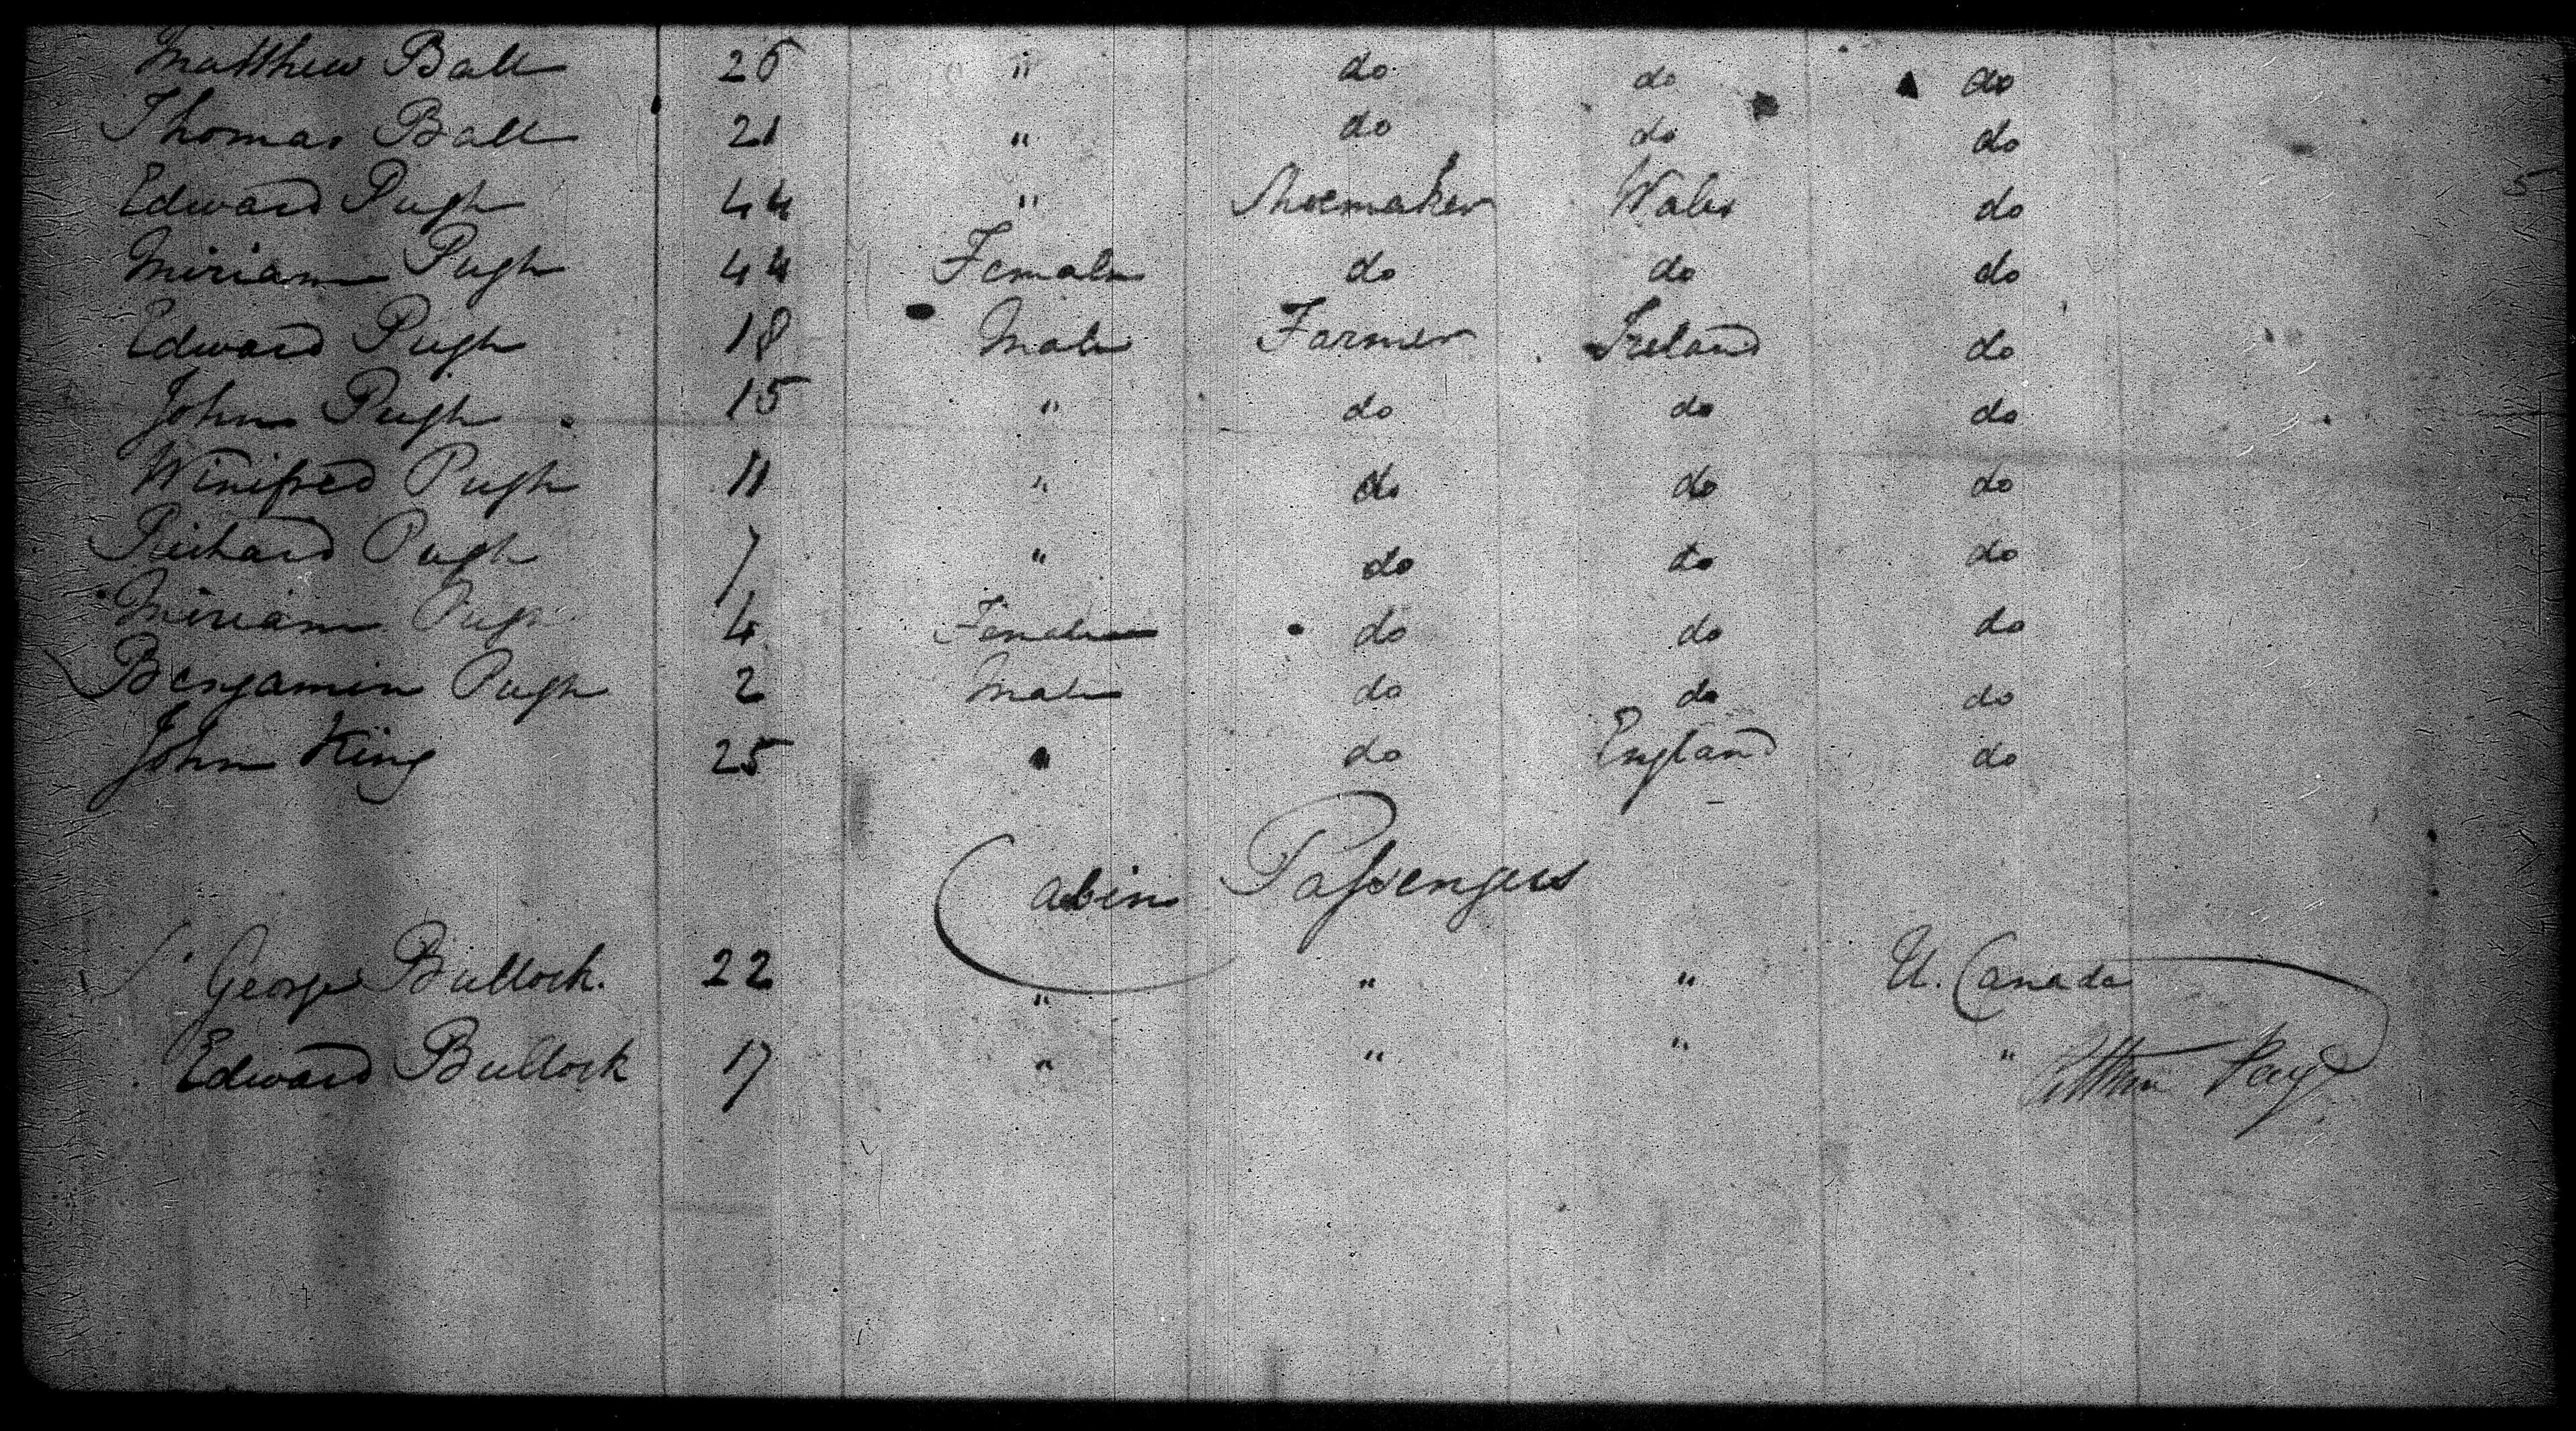 Matthew Ball 26 " do do do
Thomas Ball 21 " do do do
Edward Pugh 44 " Shoemaker Wales do
5
Miriam Pugh 44 Female do do do
Edward Pugh 18 Male Farmer Ireland do
John Pugh 15 " do do do
Winifred Pugh 11 " do do do
Richard Pugh 7 " do do do
Miriam Pugh 4 Female do do do
Benjamin Pugh 2 Male do do do
John King 25 " do England do
Cabin Passengers
George Bullock. 22 " " " U. Canada
Edward Bullock 17 " " " "